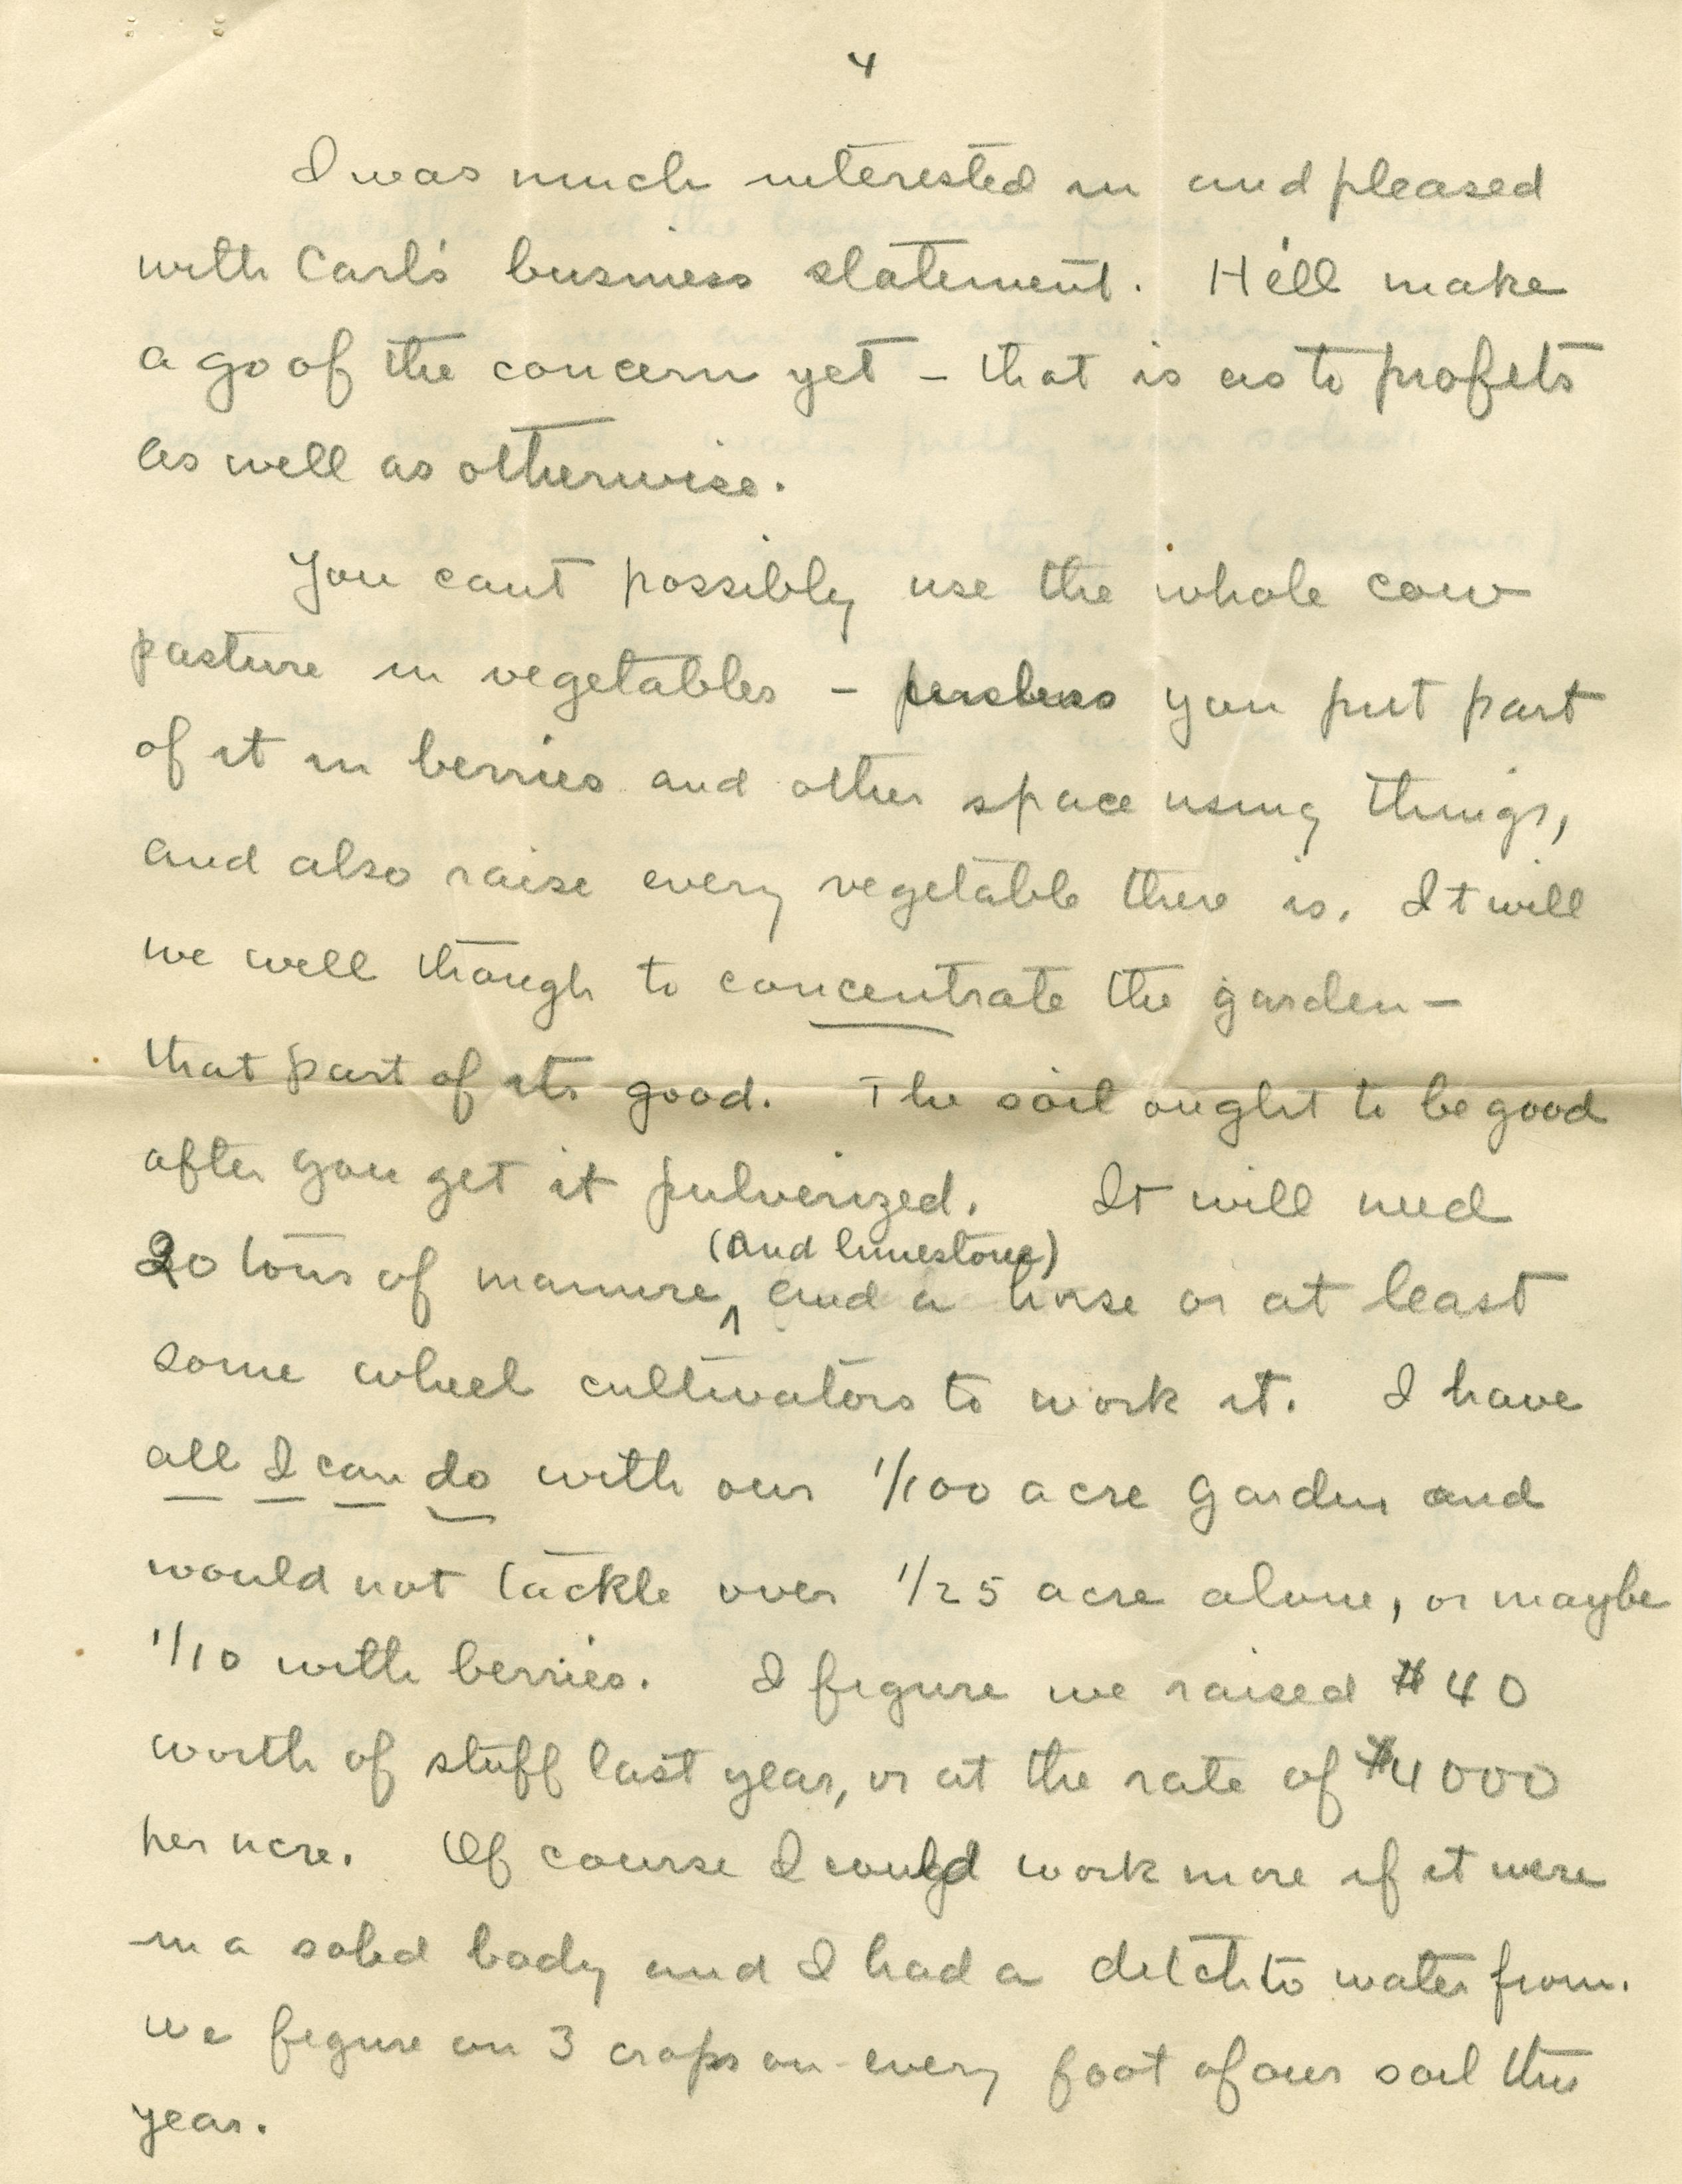 4
I was much interested in and pleased
with Carl's business statement. He'll make
a go of the concern yet – that is as to profits
as well as otherwise.
You cant possibly use the whole cow
pasture in vegetables – unless you put part
of it in berries and other space using things,
and also raise every vegetable there is. It will
we well though to concentrate the garden –
that part of its good. The soil ought to be good
after you get it pulverized. It will need
(and limestone)
20 tons of manure, ^ and a horse or at least
some wheel cultivators to work it. I have
all I can do with our 1/100 acre garden and
would not tackle over 1/25 acre alone, or maybe
1/10 with berries. I figure we raised $40
worth of stuff last year, or at the rate of $4000
per acre. Of course I could work more if it were
in a solid body and I had a ditch to water from.
We figure on 3 crops on every foot of our soil this
year.